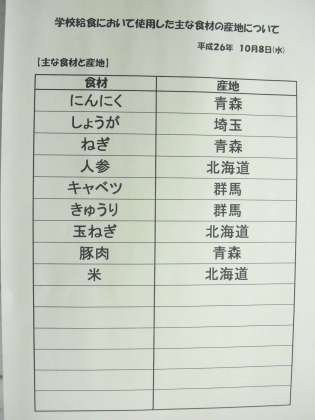 学校給食において使用した主な食材の産地について
平成26年 10月8日(水)
【主な食材と産地】
食材 産地
にんにく 青森
しょうが 埼玉
ねぎ 青森
人参 北海道
キャベツ 群馬
きゅうり 群馬
玉ねぎ 北海道
豚肉 青森
米 北海道